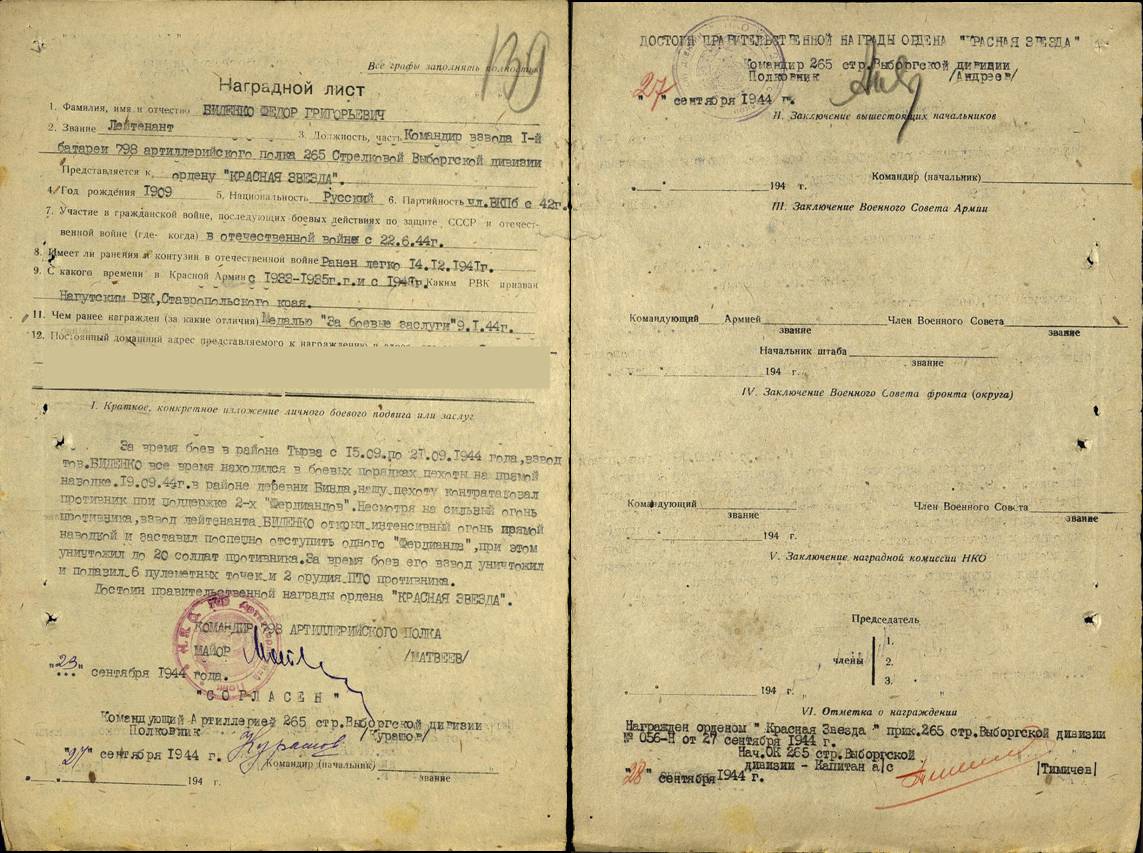 139
Все графы заполнять полностью
Наградной лист
1. Фамилия, имя и отчество БИДЕНКО ФЕДОР ГРИГОРЬЕВИЧ
2. Звание Лейтенант 3. Должность, часть Командир взвода I-й
батареи 798 артиллерийского полка 265 Стрелковой Выборгской дивизии
Представляется к ордену "КРАСНАЯ ЗВЕЗДА".
4. Год рождения 1909 5. Национальность Русский 6. Партийность чл.ВКПб с 42г.
7. Участие в гражданской войне, последующих боевых действиях по защите СССР и отечест-
венной войне (где- когда) в отечественной войне с 22.6.44г.
8. Имеет ли ранения и контузии в отечественной войне Ранен легко 14.12.1941г.
9. С какого времени в Красной Армии с 1933-1935г.г.и с Каким РВК призван
РВК,Ставропольского края.
11. Чем ранее награжден (за какие отличия) Медалью "За боевые заслуги"9.I.44г.
12. Постоянный домашний адрес представляемого к награждению и
I. Краткое, конкретное изложение личного боевого подвига или заслуг
За время боев в районе Тырва с 15.09.по 21.09.1944 года,взвод
тов.БИДЕНКО все время находился в боевых порядках пехоты на прямой
наводке.19.09.44г.в районе деревни Винда,нашу пехоту контратаковал
противник при поддержке 2-х "Фердианцов".Несмотря на сильный огонь
противника,взвод лейтенанта БИДЕНКО открыл интенсивный огонь прямой
наводкой и заставил поспешно отступить одного "Фердианда",при этом
уничтожил до 20 солдат противника.За время боев его взвод уничтожил
и подавил 6 пулеметных точек и 2 орудия ПТО противника.
Достоин правительственной награды ордена "КРАСНАЯ ЗВЕЗДА".
КОМАНДИР 798 АРТИЛЛЕРИЙСКОГО ПОЛКА
МАЙОР /МАТВЕЕВ/
"23" сентября 1944 года.
"СОГЛАСЕН"
Командующий Артиллерией 265 стр.Выборгской дивизии
Полковник Курашов /Курашов/
"27" сентября 1944 г.
Командир (начальник)
звание
194 г.
ДОСТОИН ПРАВИТЕЛЬСТВЕННОЙ НАГРАДЫ ОРДЕНА "КРАСНАЯ ЗВЕЗДА"
Командир 265 стр.Выборгской дивизии
Полковник /Андреев/
"27" сентября 1944 г.
II. Заключение вышестоящих начальников
Командир (начальник)
194 г.
III. Заключение Военного Совета Армии
Командующий Армией Член Военного Совета
звание звание
Начальник штаба
звание
194 г.
IV. Заключение Военного Совета фронта (округа)
Командующий Член Военного Совета
звание звание
194 г.
V. Заключение наградной комиссии НКО
Председатель
члены
1.
2.
3.
194 г.
VI. Отметка о награждении
Награжден орденом " Красная Звезда " прик.265 стр.Выборгской дивизии
№ 056-Н от 27 сентября 1944 г.
Нач.ОК 265 стр.Выборгской
дивизии - Капитан а/с /Тимичев/
"28" сентября 1944 г.